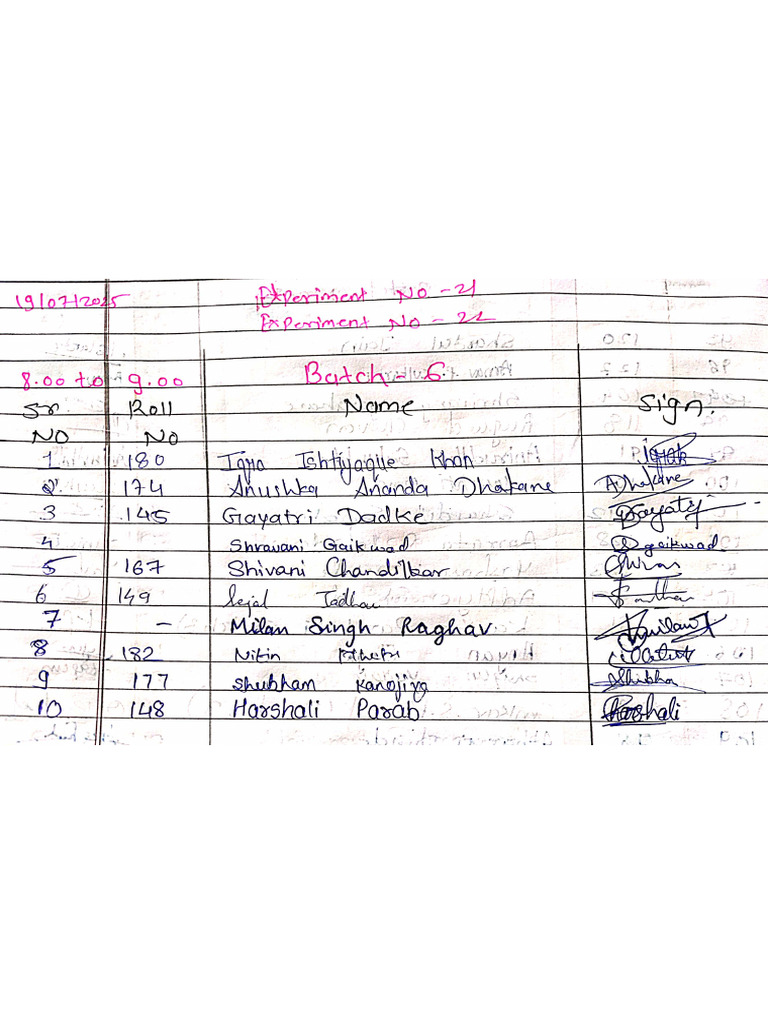 19/07/2025 Experiment No - 21
Experiment No - 22
8.00 to 9.00 Batch - 6
Sr Roll Name Sign.
No No
1 180 Iqra Ishtiyaque Khan
2 174 Anushka Ananda Dhakane ADhakane
3 145 Gayatri Dadke Gayatri
4 Shravani Gaikwad Sgaikwad
5 167 Shivani Chandilkar
6 149 Sejal Jadhav
7 - Milan Singh Raghav
8 182 Nitin
9 177 Shubham Kanojiya
10 148 Harshali Parab Harshali